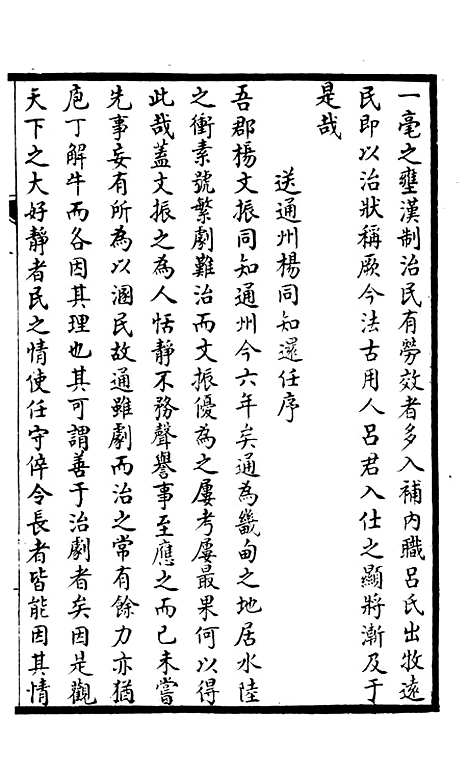 一毫之壅漢制治民有勞效者多入補內職呂氏出牧遠
民即以治狀稱厥今法古用人呂君入仕之顯將漸及于
是哉
送通州楊同知還任序
吾郡楊文振同知通州今六年矣通為畿甸之地居水陸
之衝素號繁劇難治而文振優為之屢考屢最果何以得
此哉蓋文振之為人恬靜不務聲譽事至應之而已未嘗
先事妄有所為以溷民故通雖劇而治之常有餘力亦猶
庖丁解牛而各因其理也其可謂善于治劇者矣因是觀
天下之大好靜者民之情使任守倅令長者皆能因其情